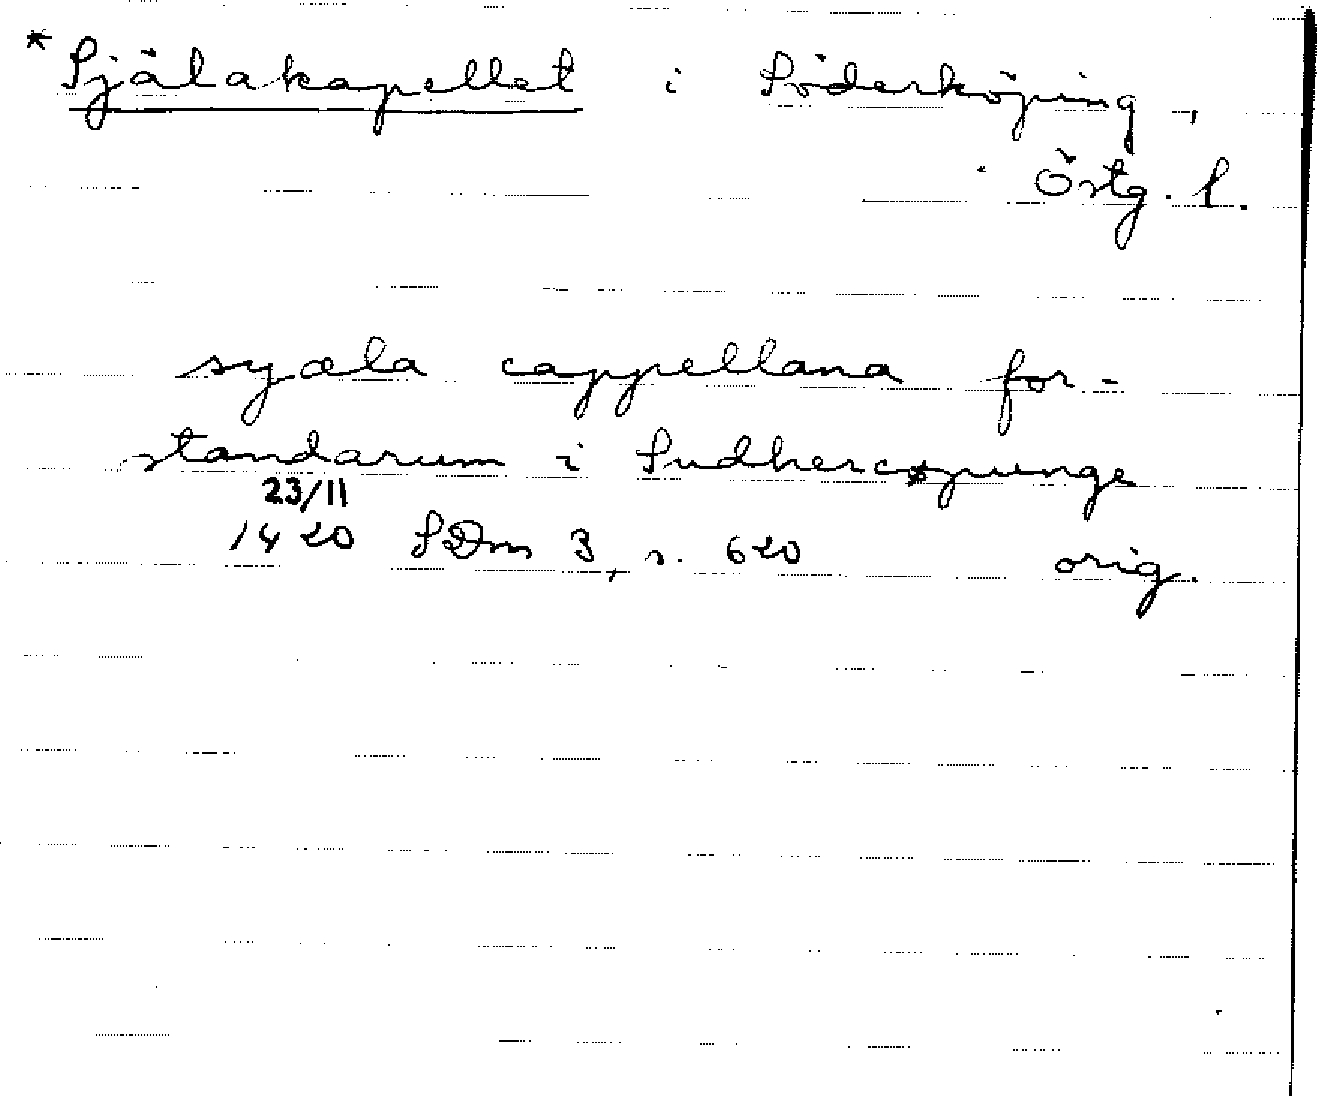 * Själakapellet i Söderköping,
Östg. l.
syæla cappellana for-
standarum i Sudhercøpunge
23/11
1420 SDns 3, s. 620 orig.